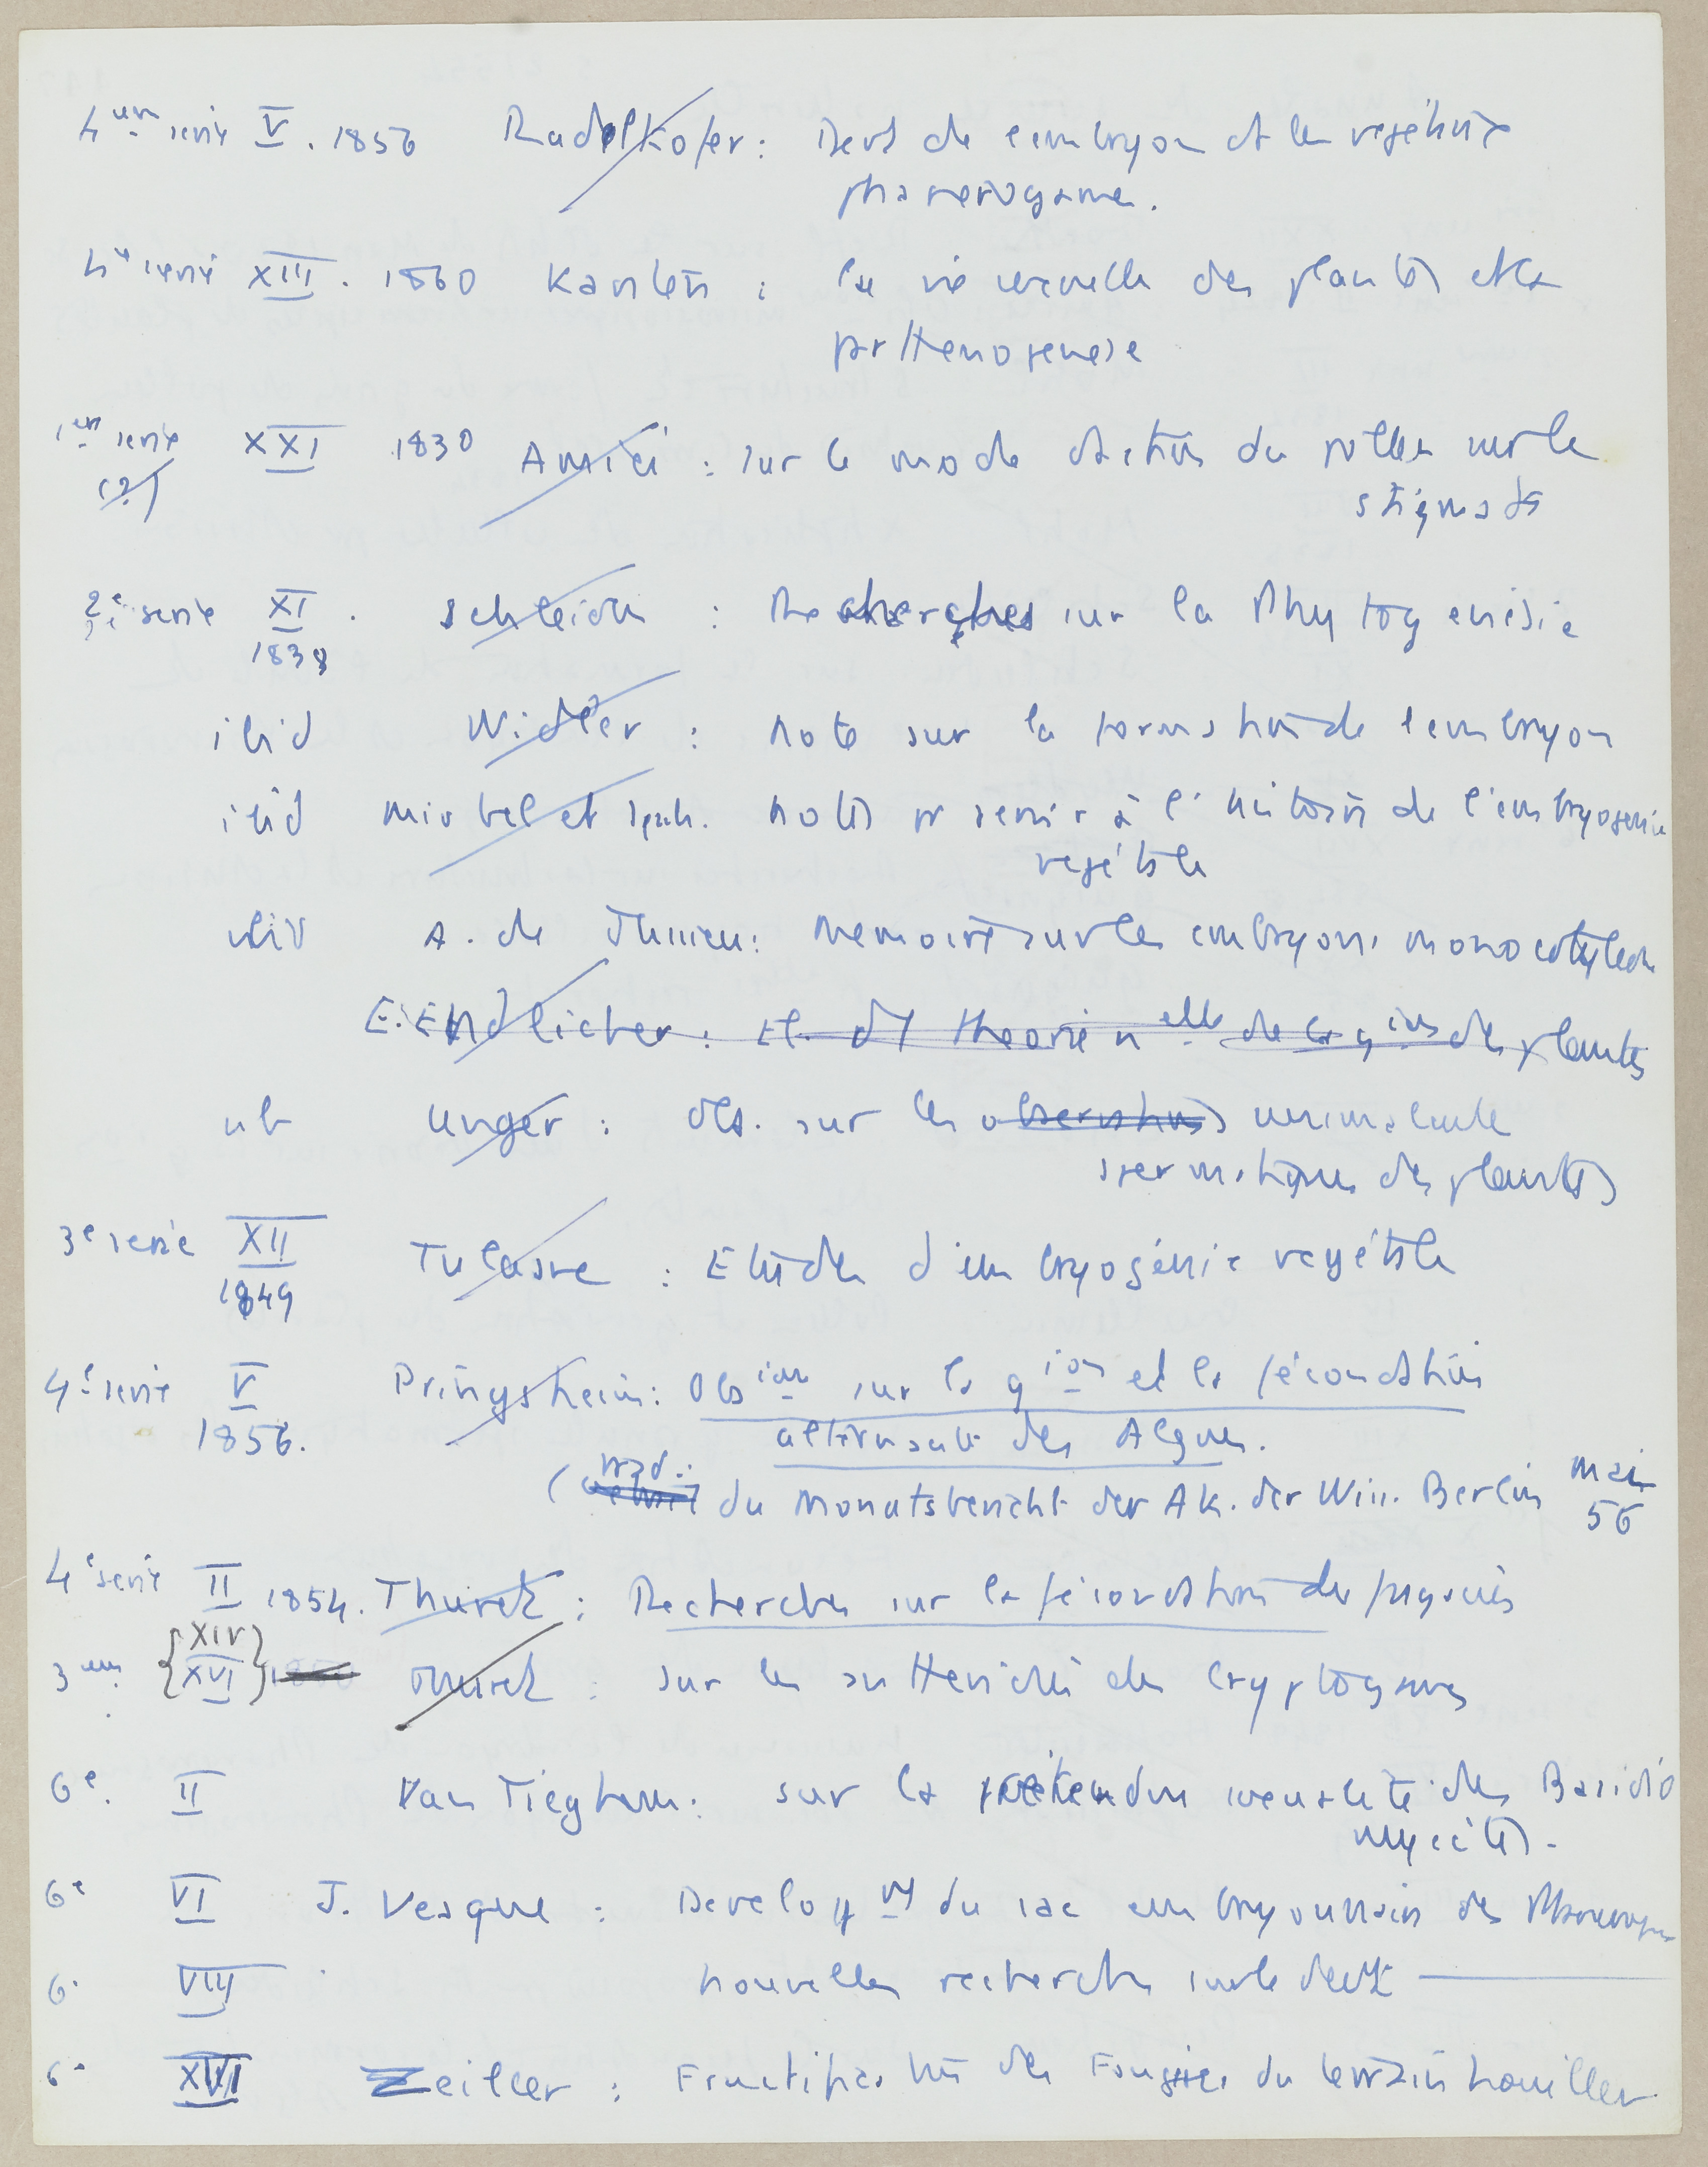 4ème série V. 1856 Radelkofer: Devt de l'embryon ds les végétaux
phanerogames.
4e serie XIII. 1860 Karsten : la vie sexuelle des plantes et la
parthenogenese
1ere serie XXI 1830 Amici : sur le mode d'action du pollen sur le
(2) stigmate
2e serie XI. Schleiden : Recherches sur la Phytogenésie
1839
ibid Widler : Note sur la formation de l'embryon
ibid Mirbel et Spach. notes pr servir à l'histoire de l'embryogenie
vegétale
ibid A. de Jussieu: Memoire sur les embryons monocotyledon
E. Endlicher : El. d'1 theorie nelle de la gion des plantes
ub Unger : Obs. sur les observations animalcule
spermatiques des plantes
3e serie XII Tulasne : Etudes d'embryogénie vegétale
1849
4e serie V Pringsheim: Obsions sur la gion et la fécondation
1856. alternante des Algues.
(trad. du Monatsbericht der Ak. der Wiss. Berlin mai
56
4e serie II 1854. Thuret : Recherches sur la fécondation des fucacées
XIV
3eme XVI Thuret : sur les antheridies des cryptogames
6e. II Van Tieghem: sur la prétendue sexualité des Basidio
mycètes.
6e VI J. Vesque : Developpt du sac embryonnaire des Phanerogames
6e VIII nouvelles recherches sur le devt
6e XVI Zeiller : Fructification des Fougères du terrain houiller